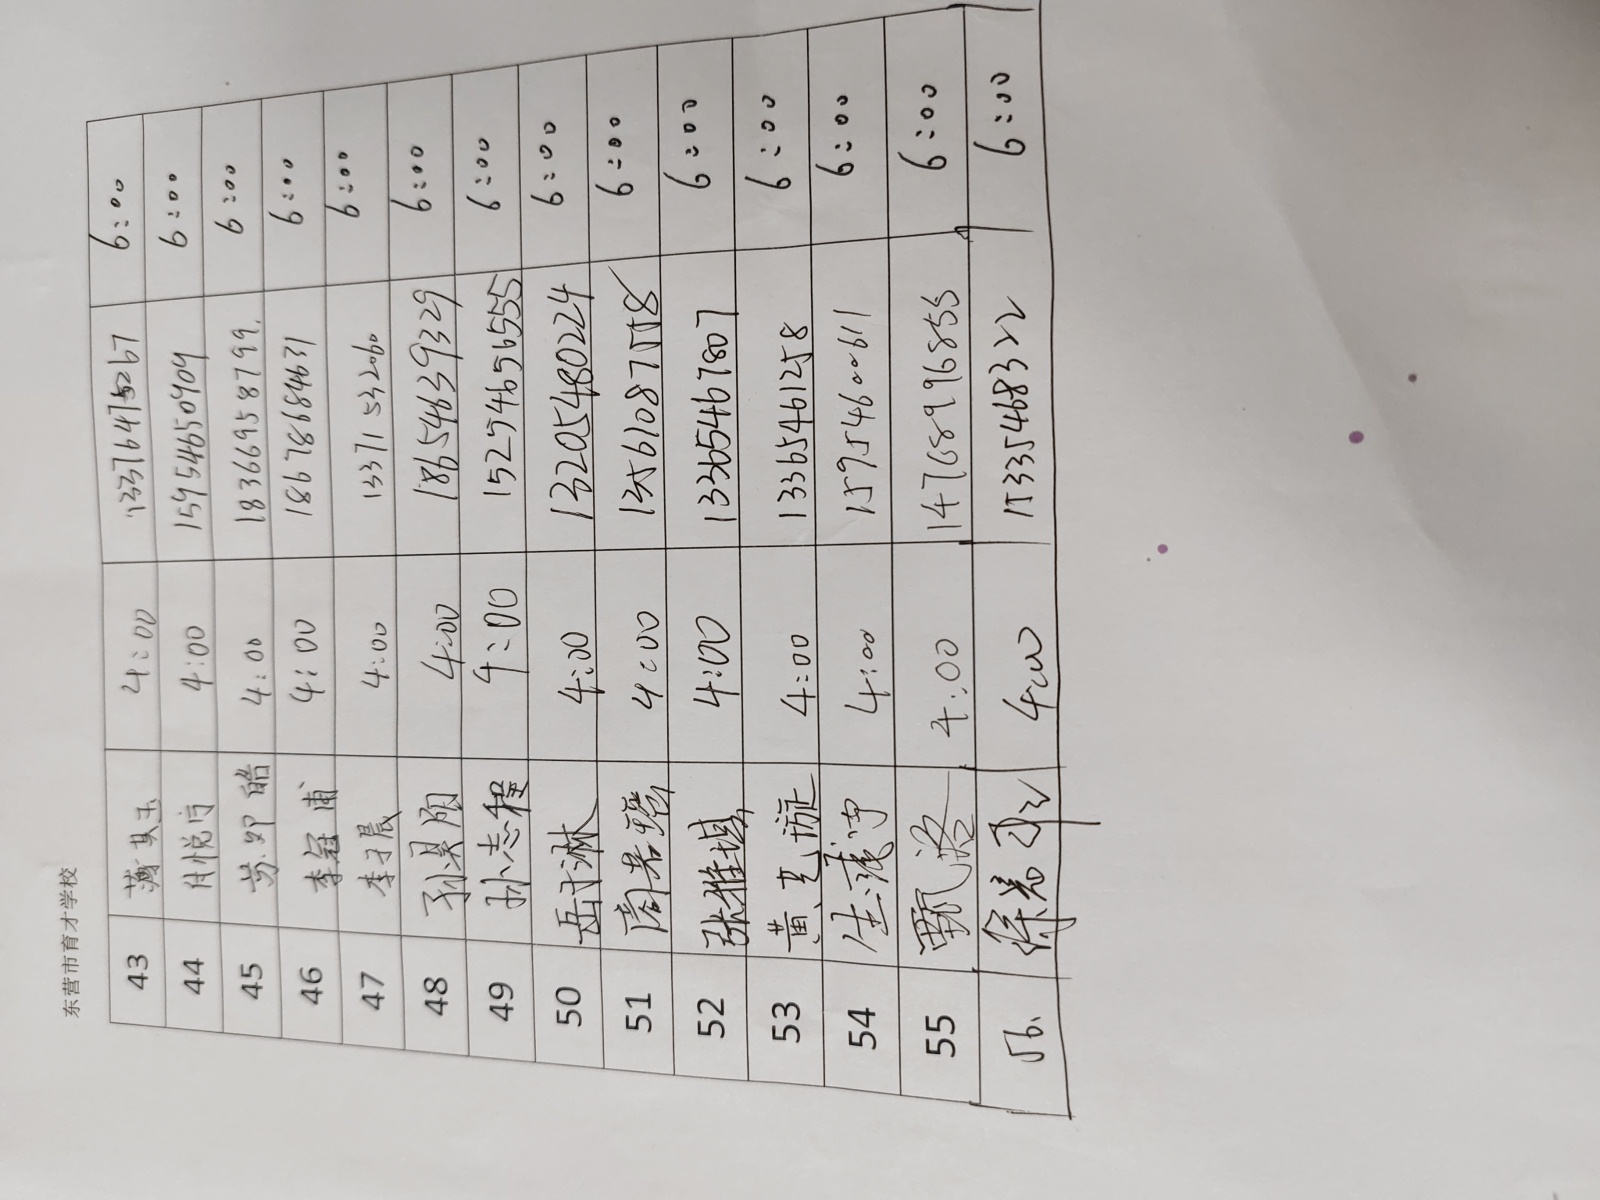 东营市育才学校
43 薄其玉 4:00 13376475267 6:00
44 付悦宁 4:00 15954650909 6:00
45 苏郅皓 4:00 18366958799. 6:00
46 李冠甫 4:00 18678684631 6:00
47 李子晨 4:00 13371532060 6:00
48 孙昊阳 4:00 18654639329 6:00
49 孙志程 4:00 15254656555 6:00
50 岳子淋 4:00 13205480224 6:00
51 周若瑶 4:00 13561087558 6:00
52 张雅琪 4:00 13365467807 6:00
53 黄克漩 4:00 13365461258 6:00
54 4:00 15954600611 6:00
55 甄洛 4:00 14768996855 6:00
56. 徐若 4:00 15335468322 6:00